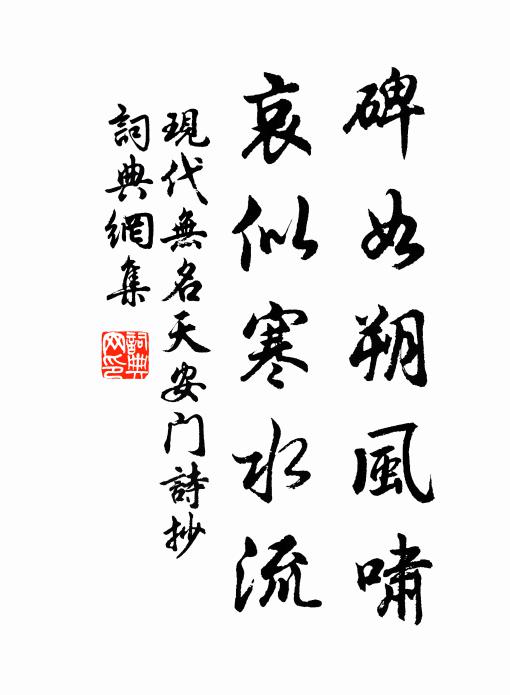 碑如朔風嘯
哀似寒水流
現代無名天安门詩抄
詞典網集
詞典
网印